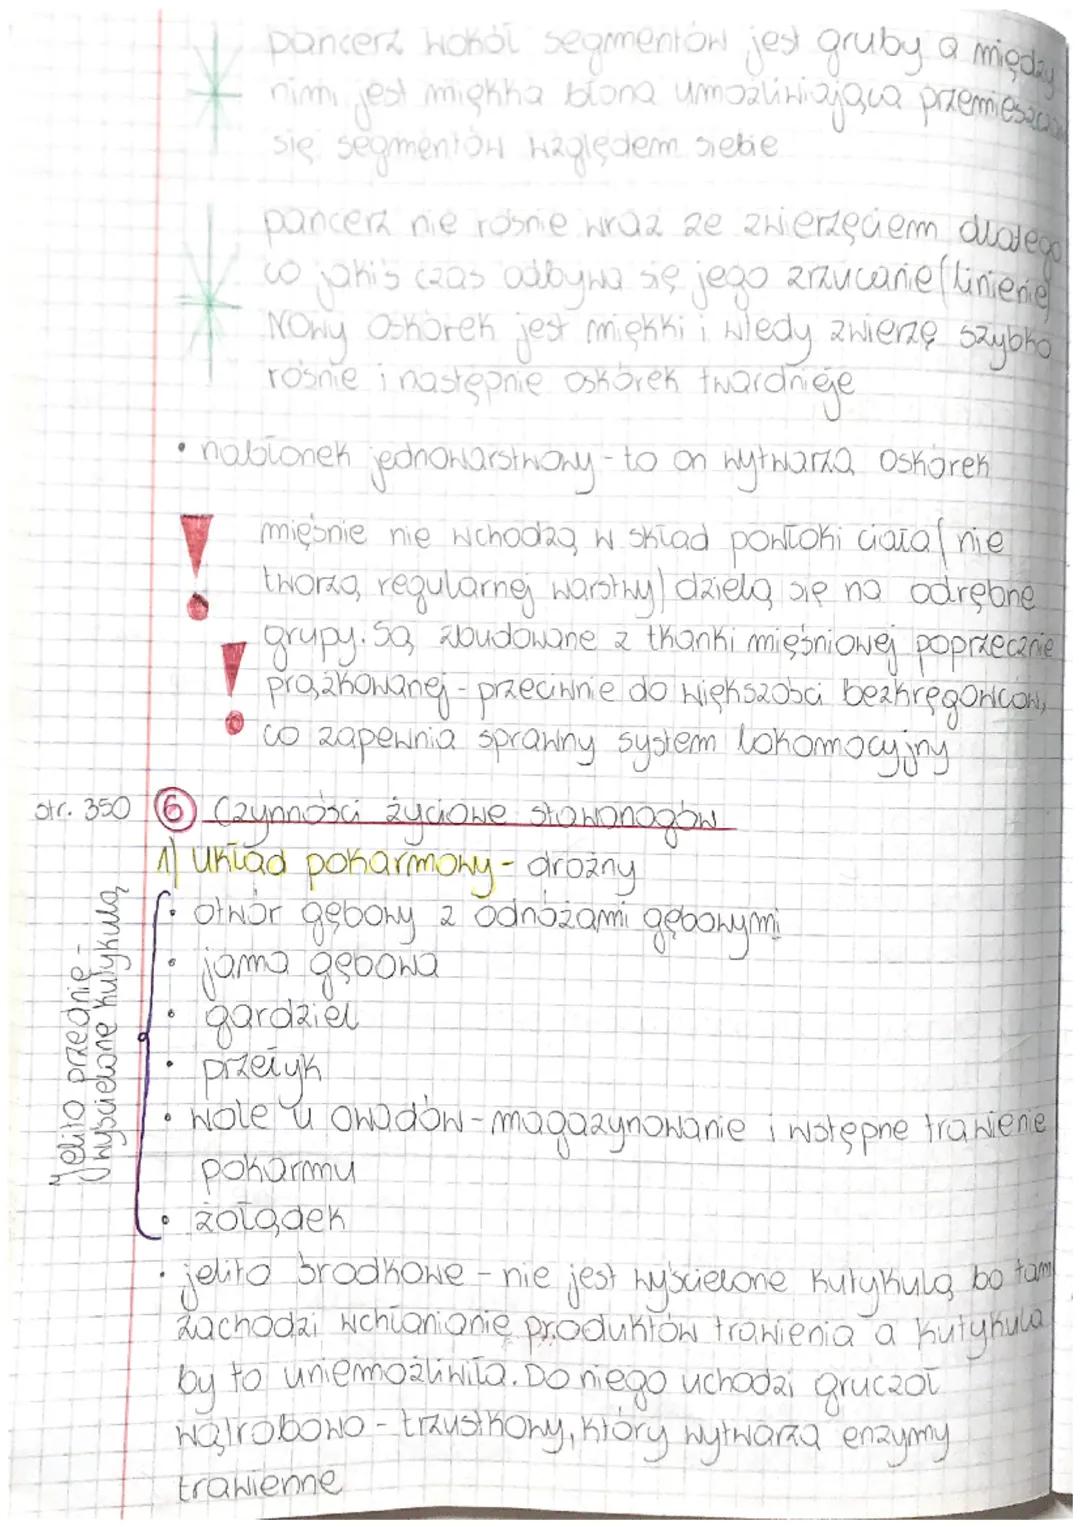 pancerz wokół segmentów jest gruby a między
nimi jest miękka błona umożliwiająca
się segmentów względem siebie
pancerz nie rośnie wraz ze zwierzęciem dlatego
co jakiś czas odbywa się jego zrzucanie (linienie)
Nowy oskórek jest miękki i wtedy zwierzę szybko
rośnie i następnie oskórek twardnieje
• nabłonek jednowarstwowy - to on wytwarza oskórek
mięśnie nie wchodzą w skład powłoki ciała (nie
tworzą regularnej warstwy) dzielą się na odrębne
grupy. Są zbudowane z tkanki mięśniowej poprzecznie
prążkowanej - przeciwnie do większości bezkręgowców,
co zapewnia sprawny system lokomocyjny
str. 350 ⑥ Czynności życiowe stawonogów
1) Układ pokarmowy - drożny
• otwór gębowy z odnóżami gębowymi
• jama gębowa
• gardziel
• przełyk
• wole u owadów - magazynowanie i wstępne trawienie
pokarmu
• żołądek
Jelito przednie -
wyścielone kutykulą
• jelito środkowe - nie jest wyścielone kutykulą bo tam
zachodzi wchłanianie produktów trawienia a kutykula
by to uniemożliwiła. Do niego uchodzi gruczoł
wątrobowo - trzustkowy, który wytwarza enzymy
trawienne